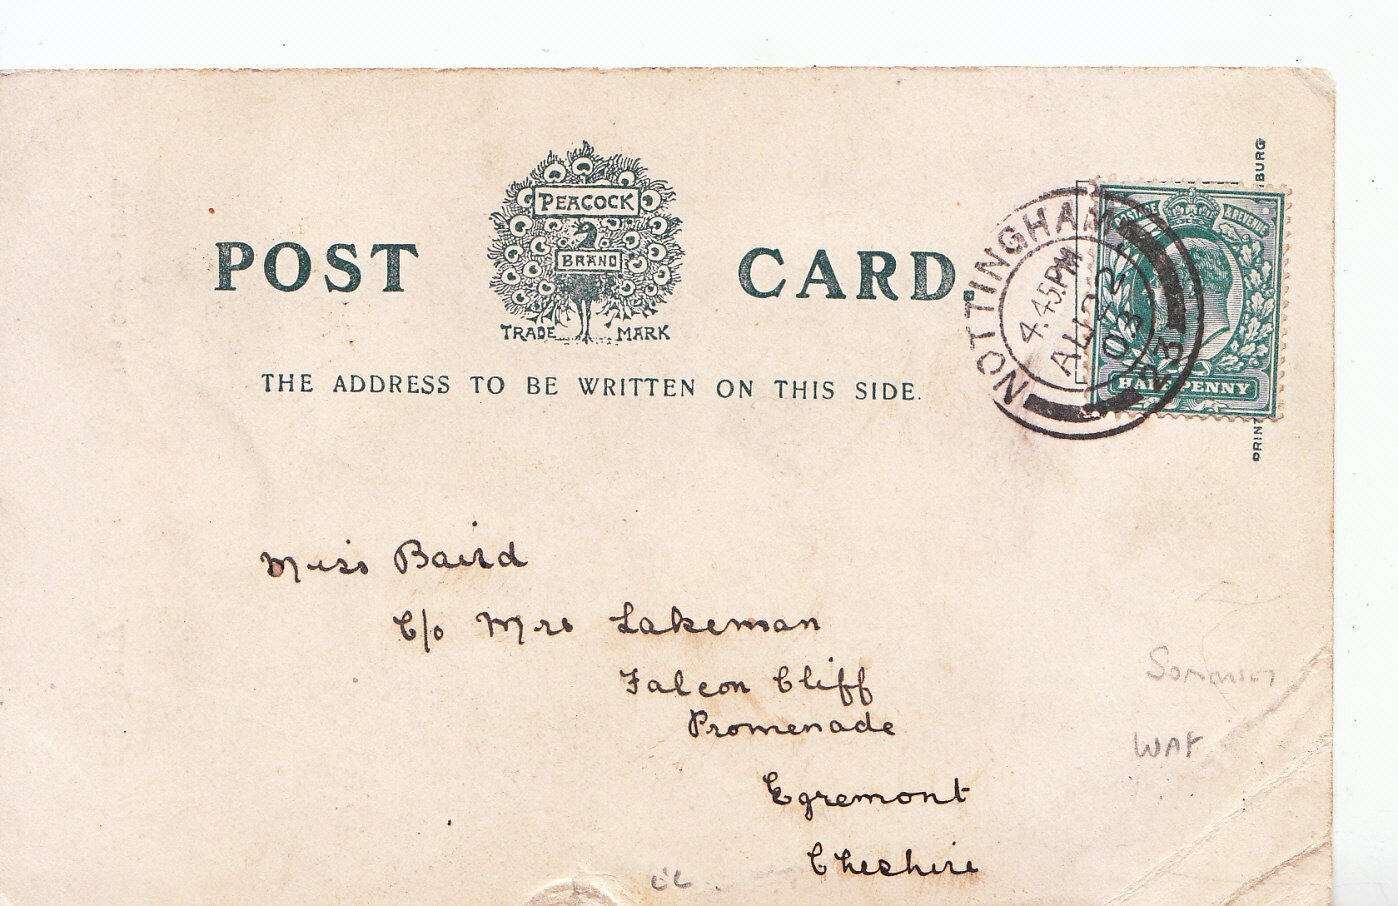 PEACOCK
BRAND
TRADE MARK
POST CARD.
THE ADDRESS TO BE WRITTEN ON THIS SIDE.
NOTTINGHAM
4.45PM
03
23
POSTAGE & REVENUE
HALF PENNY
BURG
PRINT
Miss Baird
C/o Mrs Lakeman
Falcon Cliff
Promenade
Egremont
Cheshire